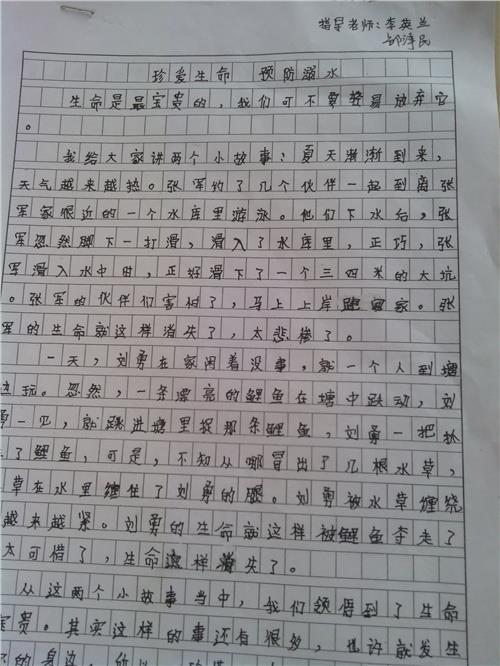 指导老师:李英兰
邹泽民
珍爱生命 预防溺水
生命是最宝贵的,我们可不要轻易放弃它
。
我给大家讲两个小故事:夏天渐渐到来,
天气越来越热。张军约了几个伙伴一起到离张
军家很近的一个水库里游泳。他们下水后,张
军忽然脚下一打滑,滑入了水库里,正巧,张
军滑入水中时,正好滑下了一个三四米的大坑
。张军的伙伴们害怕了,马上上岸跑回家。张
军的生命就这样消失了,太悲惨了。
一天,刘勇在家闲着没事,就一个人到塘
边玩。忽然,一条漂亮的鲤鱼在塘中跃动,刘
勇一见,就跳进塘里捉那条鲤鱼,刘勇一把抓
了鲤鱼,可是,不知从哪冒出了几根水草,
草在水里缠住了刘勇的腿。刘勇被水草缠绕
越来越紧。刘勇的生命就这样被鲤鱼夺走了
太可惜了,生命这样消失了。
从这两个小故事当中,我们领得到了生命
宝贵。其实这样的事还有很多,也许就发生
的身边。